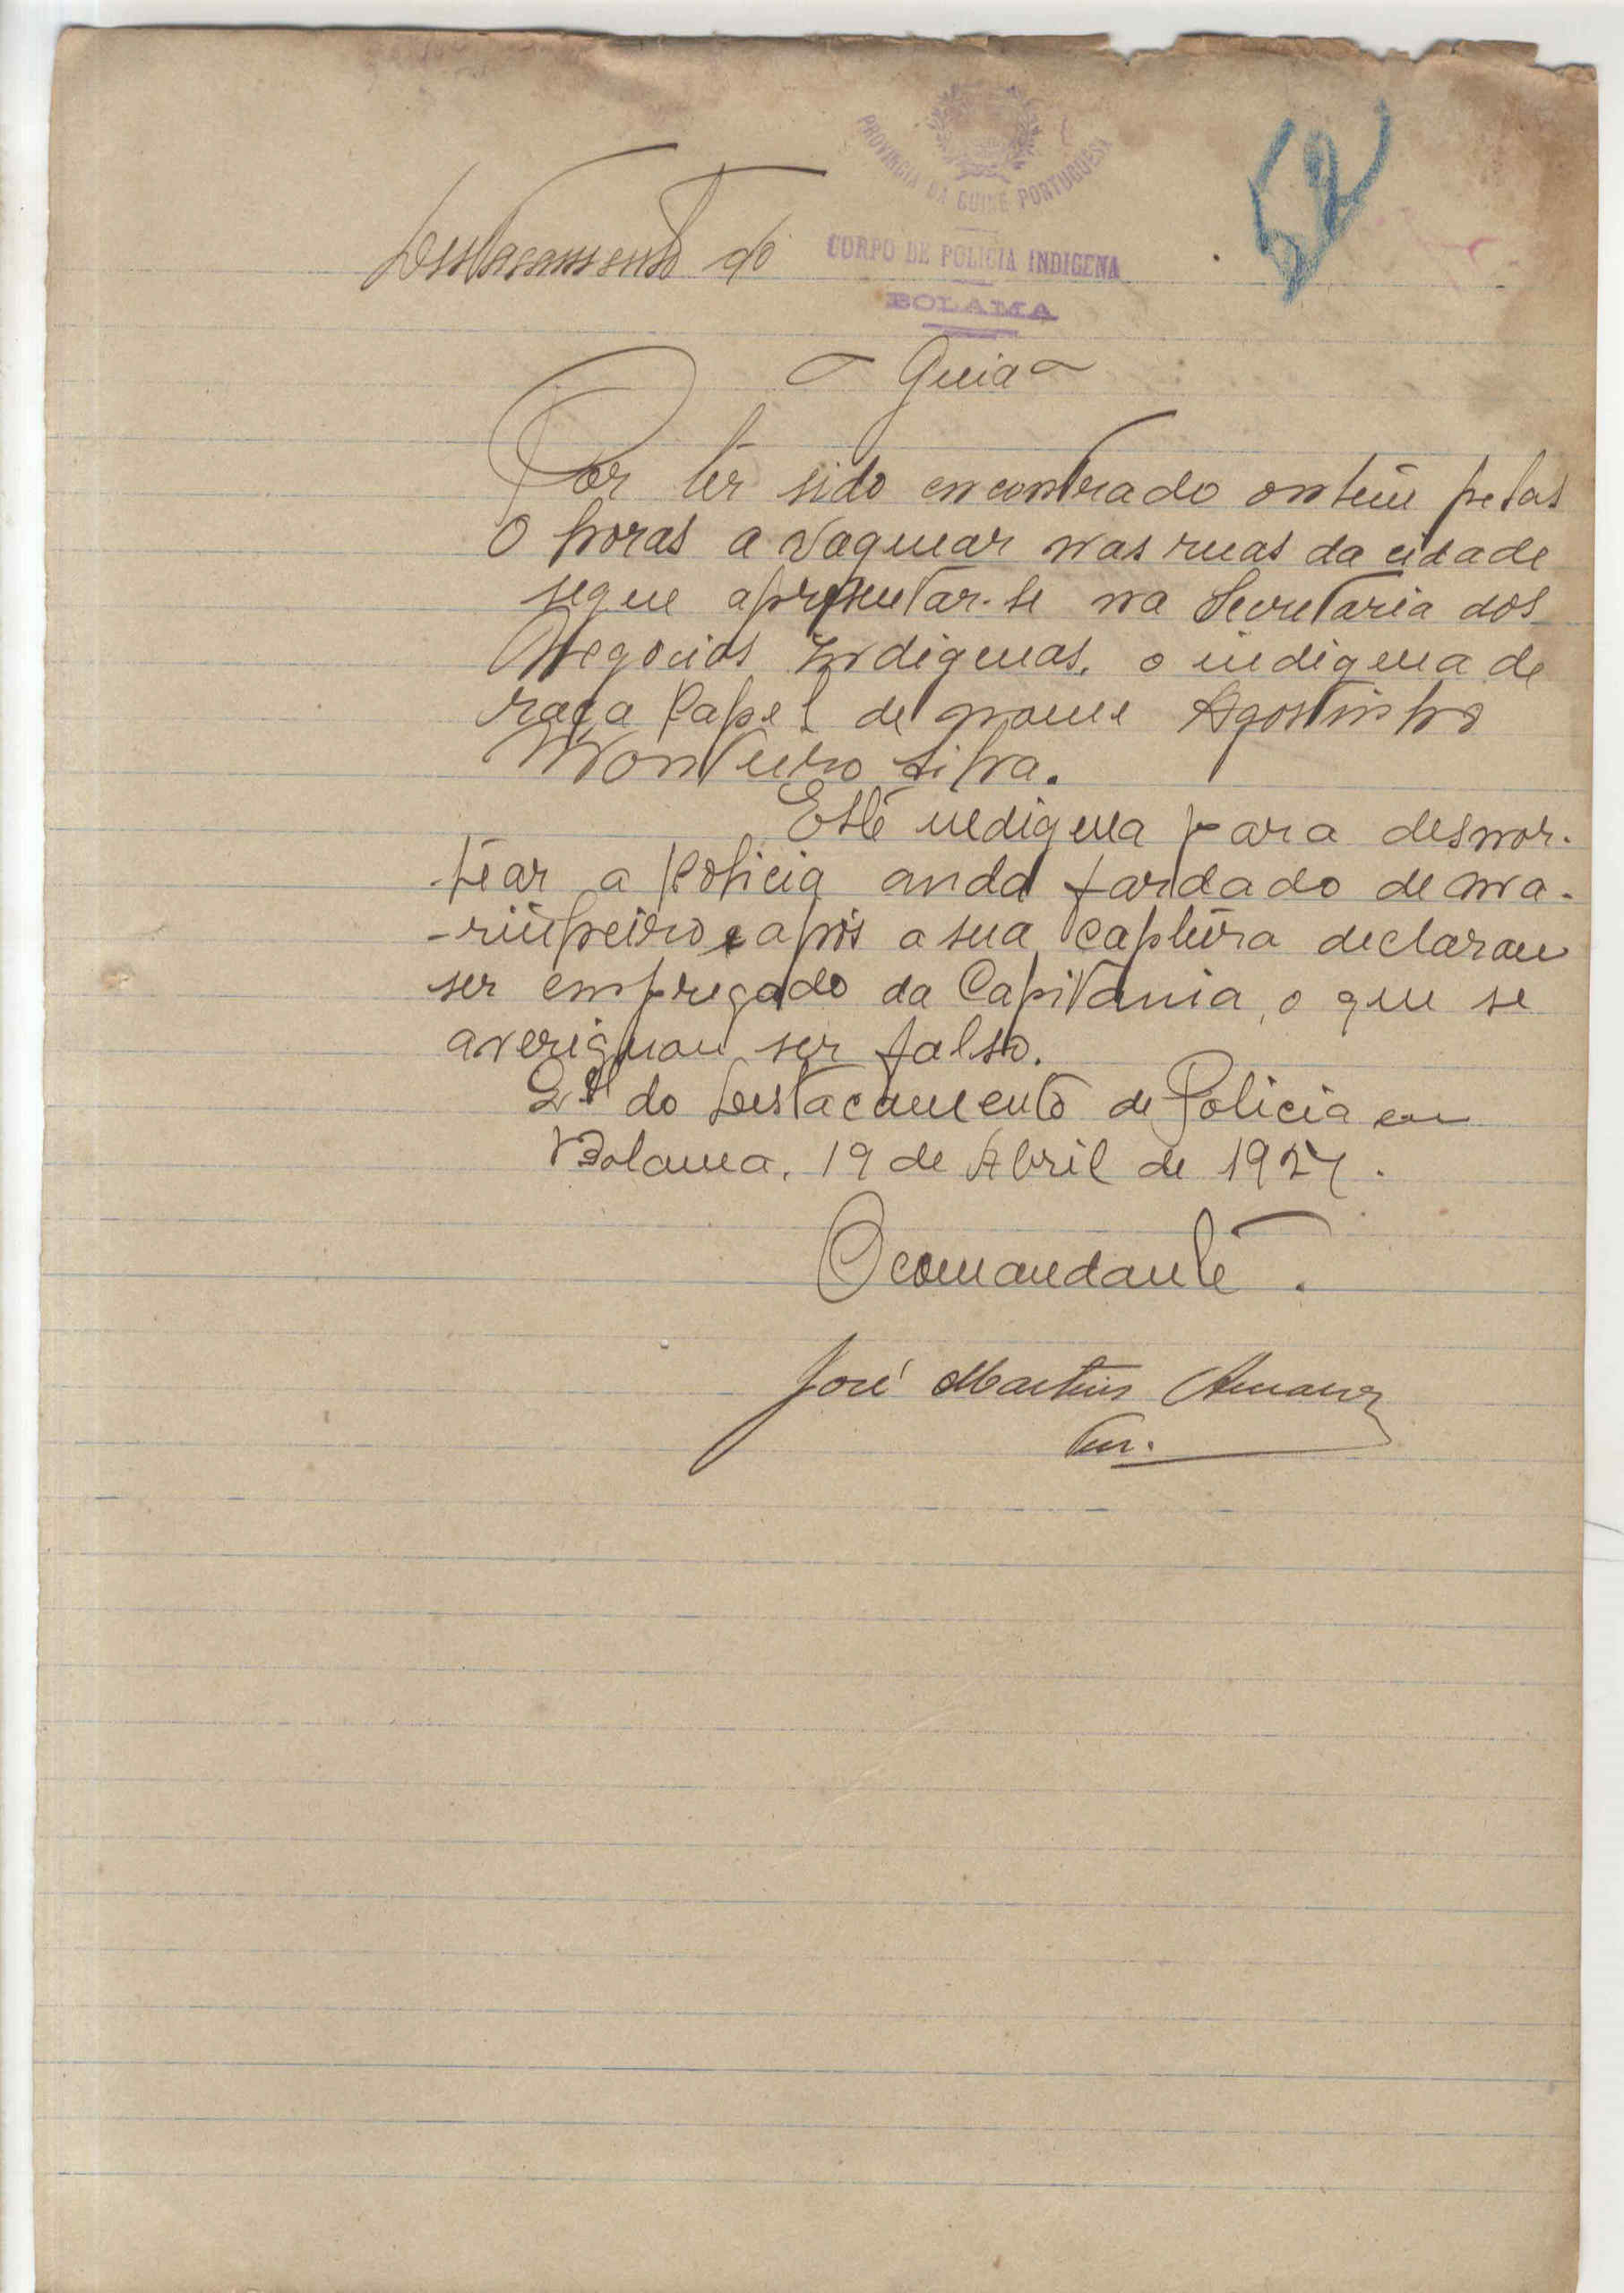 PROVINCIA DA GUINÉ PORTUGUESA
52
Destacamento do CORPO DE POLICIA INDIGENA
BOLAMA
Guia
Por ter sido encontrado ontem pelas
0 horas a vaguear nas ruas da cidade
segue apresentar-se na Secretaria dos
Negocios Indigenas, o indigena de
raça Papel de nome Agostinho
Monteiro Silva.
Este indigena para desnor-
-tear a Policia anda fardado de ma-
-rinheiro e após a sua captura declarou
ser empregado da Capitania, o que se
averiguou ser falso.
Q.el do Destacamento de Policia em
Bolama, 19 de Abril de 1927.
O comandante.
José Martins
Ten.